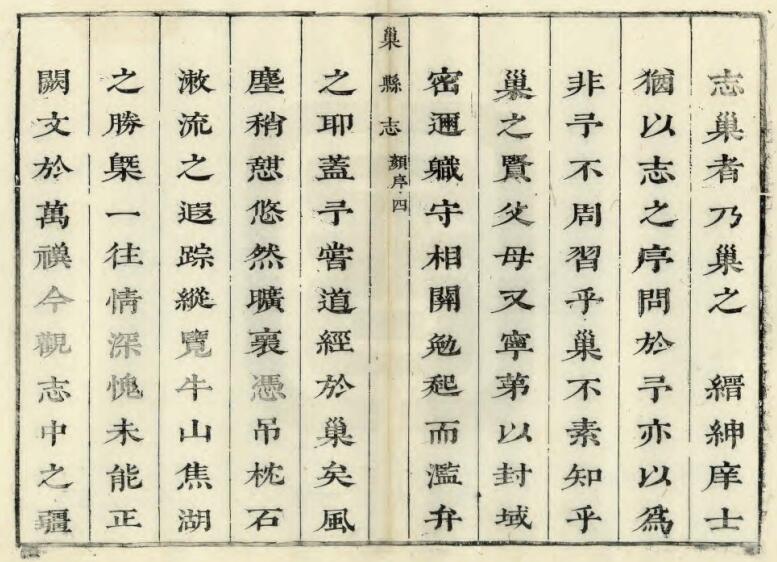 志巢者乃巢之　縉紳庠士
猶以志之序問於予亦以爲
非予不周習乎巢不素知乎
巢之賢父母又寧第以封域
密邇職守相關勉起而濫弁
巢縣志　顏序　四
之耶蓋予嘗道經於巢矣風
塵稍憇悠然曠褱憑吊枕石
漱流之遐踪縱覽牛山焦湖
之勝槩一往情深愧未能正
闕文於萬禩今觀志中之疆